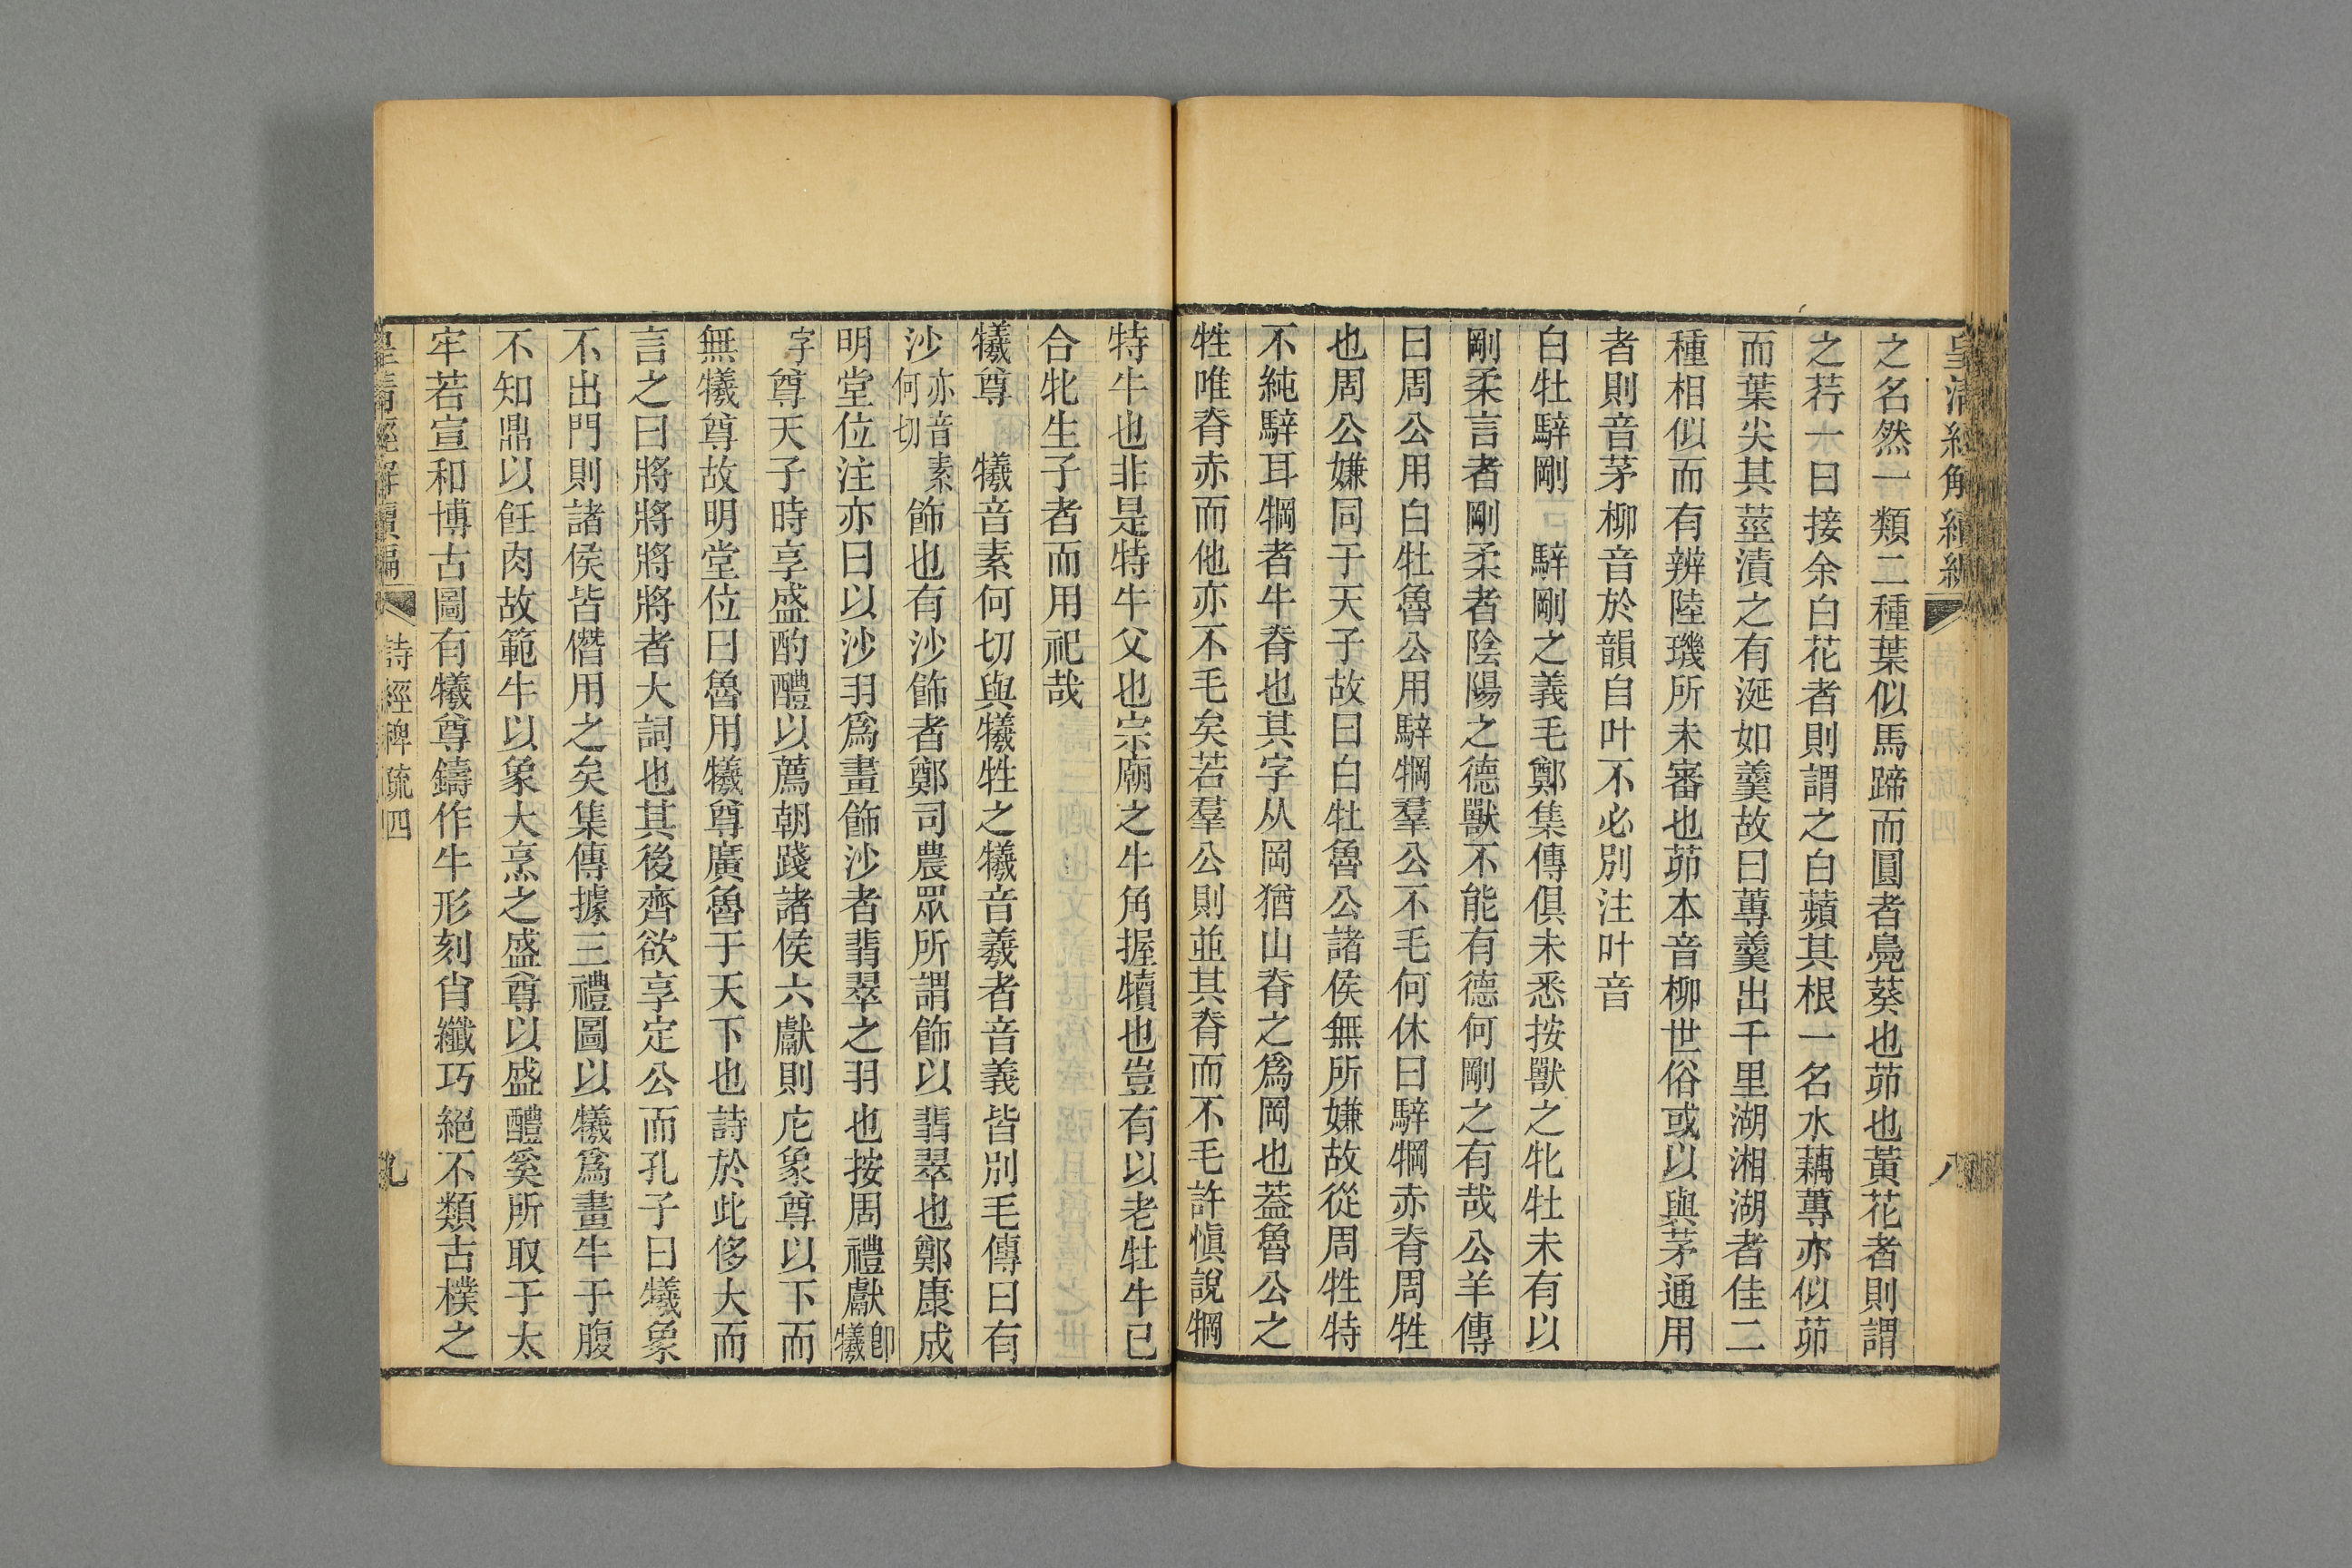 皇清經解續編
八
之名然一類二種葉似馬蹄而圓者鳧葵也茆也黃花者則謂
之荇一曰接余白花者則謂之白蘋其根一名水藕蓴亦似茆
而葉尖其莖漬之有涎如羹故曰蓴羹出千里湖湘湖者佳二
種相似而有辨陸璣所未審也茆本音柳世俗或以與茅通用
者則音茅柳音於韻自叶不必別注叶音
白牡騂剛 騂剛之義毛鄭集傳俱未悉按獸之牝牡未有以
剛柔言者剛柔者陰陽之德獸不能有德何剛之有哉公羊傳
曰周公用白牡魯公用騂犅羣公不毛何休曰騂犅赤脊周牲
也周公嫌同于天子故曰白牡魯公諸侯無所嫌故從周牲特
不純騂耳犅者牛脊也其字从岡猶山脊之爲岡也葢魯公之
牲唯脊赤而他亦不毛矣若羣公則並其脊而不毛許愼說犅
特牛也非是特牛父也宗廟之牛角握犢也豈有以老牡牛已
合牝生子者而用祀哉
犧尊 犧音素何切與犧牲之犧音羲者音義皆別毛傳曰有
沙亦音素何切飾也有沙飾者鄭司農眾所謂飾以翡翠也鄭康成
明堂位注亦曰以沙羽爲畫飾沙者翡翠之羽也按周禮獻卽犧
字尊天子時享盛酌醴以薦朝踐諸侯六獻則庀象尊以下而
無犧尊故明堂位曰魯用犧尊廣魯于天下也詩於此侈大而
言之曰將將將將者大詞也其後齊欲享定公而孔子曰犧象
不出門則諸侯皆僭用之矣集傳據三禮圖以犧爲畫牛于腹
不知鼎以飪肉故範牛以象大烹之盛尊以盛醴奚所取于太
牢若宣和博古圖有犧尊鑄作牛形刻肖纖巧絕不類古樸之
皇清經解續編
詩經稗疏四
九